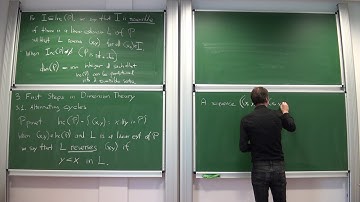 For I ⊆ Inc(P), we say that I is reversible
if there is a linear extension L of P
so that L reverses (x,y) for all (x,y) ∈ I.
When Inc(P) ≠ ∅
dim(P) = integer d such that
Inc(P) can be partitioned
into d reversible sets.
3. First Steps in Dimension Theory
3.1. Alternating cycles
P poset Inc(P) = {(x,y): x ∥ y in P}
When (x,y) ∈ Inc(P) and L is a linear ext of P
we say that L reverses (x,y) if
y < x in L.
A sequence (x